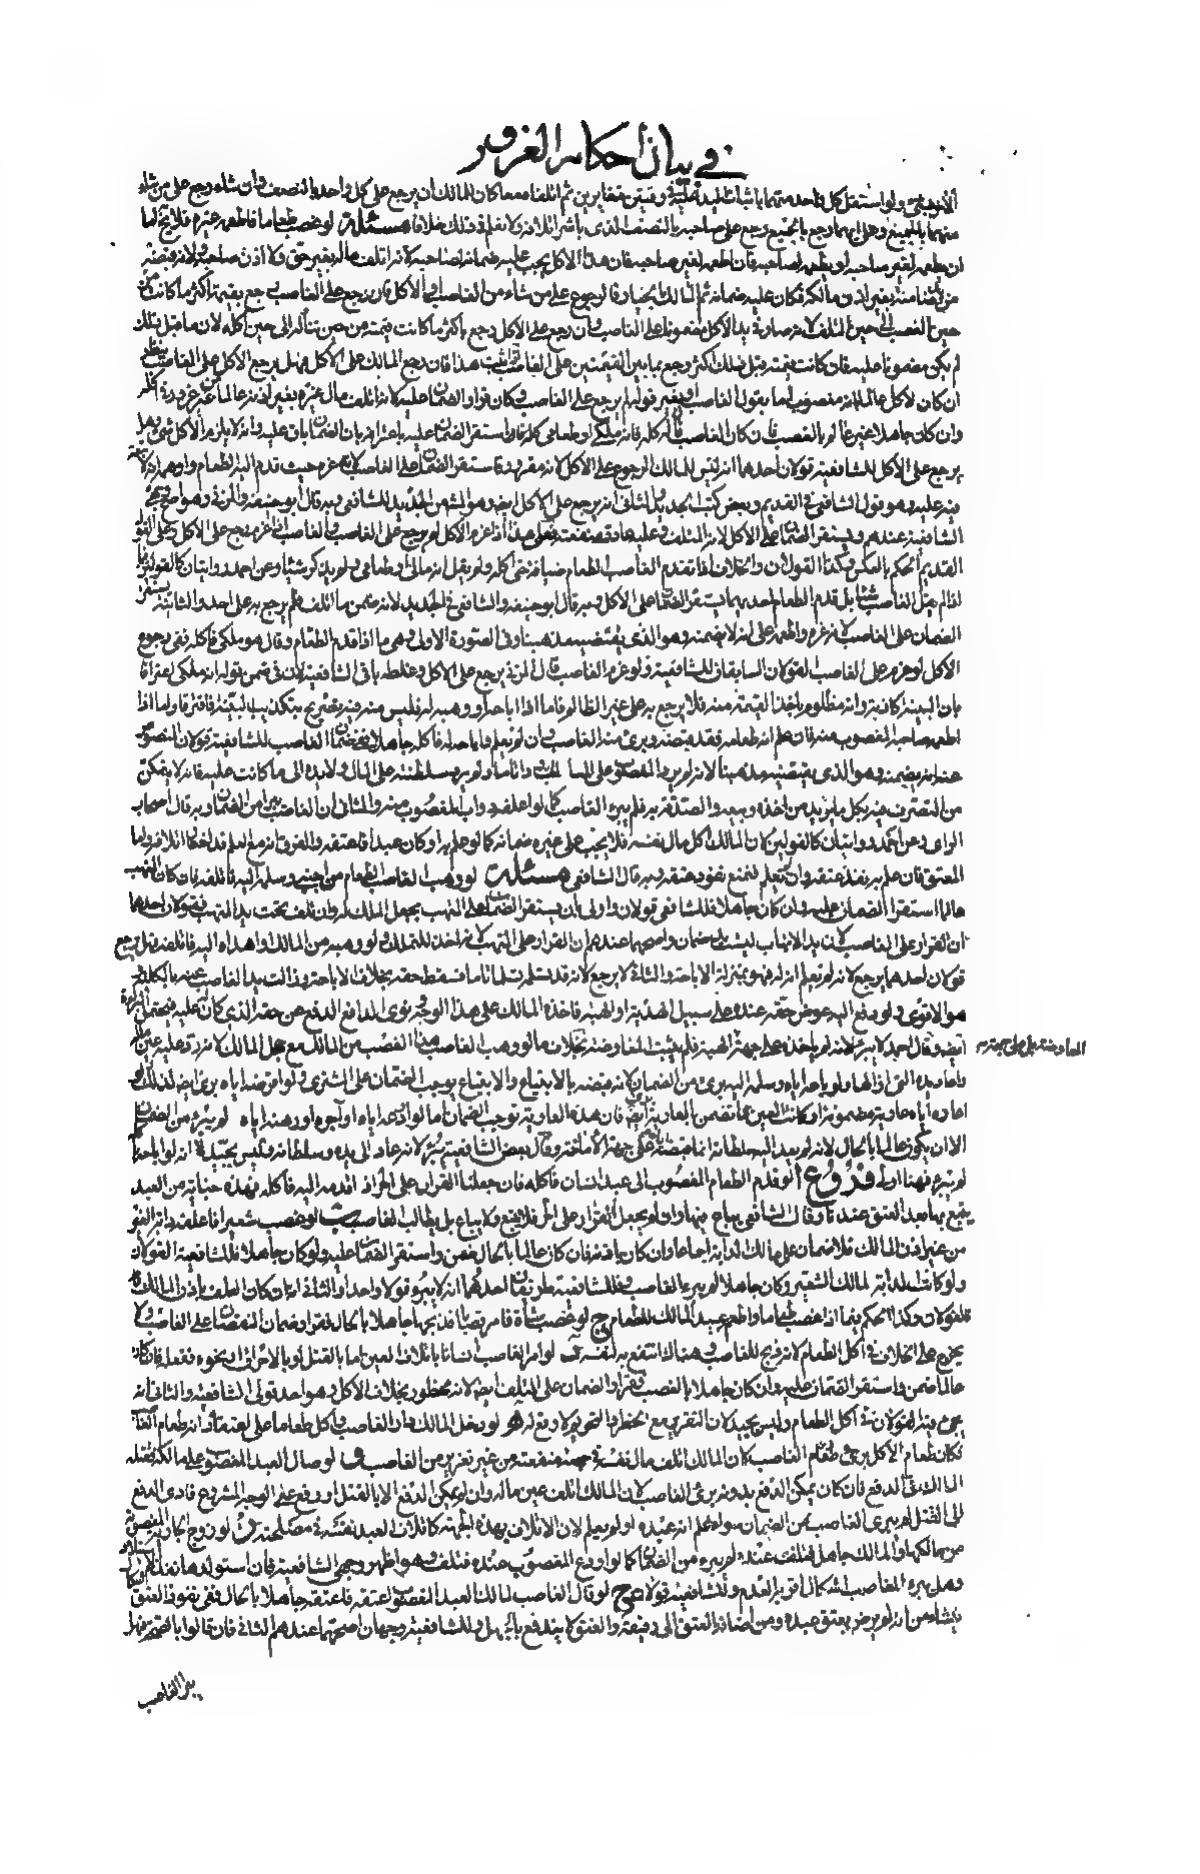 في بيان احكام الغرور
منهما بالجميع وعلى ايهما رجع بالجميع رجع على صاحبه بالنصف الذي باشر اتلافه ولا نعلم في ذلك خلافا مسئلة لو غصب طعاما فاطعمه غيره فلا يخ اما
ان يطعمه لغير صاحبه او يطعمه لصاحبه فان اطعمه لغير صاحبه فان هذا الاكل يجب عليه ضمانه لصاحبه لانه اتلف ماله بغير حق ولا اذن صاحبه ولانه قبضه
من يد ضامنة بغير اذن مالكه فكان عليه ضمانه ثم المالك بالخيار في الرجوع على من شاء من الغاصب والاكل فان رجع على الغاصب رجع بقيمته اكثر ما كانت من
حين الغصب الى حين التلف لانه صار في يد الاكل مضمونا على الغاصب وان رجع على الاكل رجع باكثر ما كانت قيمته من حين تناوله الى حين اكله لان ما قبل ذلك
لم يكن مضمونا عليه فان كانت قيمته قبل ذلك اكثر رجع بما بين القيمتين على الغاصب اذا ثبت هذا فان رجع المالك على الاكل فهل يرجع الاكل على الغاصب ينظر
ان كان الاكل عالما بانه مغصوب اما بقول الغاصب او بغير قوله لم يرجع على الغاصب وكان قرار الضمان عليه لانه اتلف مال غيره بغير اذنه عالما من غير غرور
وان كان جاهلا غير عالم بالغصب فان كان الغاصب قال له كله فانه ملكي او طعامي فكله فان استقر الضمان عليه باعترافه بان الضمان باق عليه وانه لا يلزم الاكل شيء وهل
يرجع على الاكل للشافعية قولان احدهما انه ليس للمالك الرجوع على الاكل لانه مغرور فاستقر الضمان على الغاصب لانه غره حيث قدم اليه الطعام واوهمه انه لا تبعة
فيه عليه وهو قول الشافعي في القديم وبعض كتب الجديد والثاني انه يرجع على الاكل ايضا وهو المشهور من الجديد للشافعي وبه قال ابو حنيفة والمزني وهو اصح
الشافعية عندهم ويستقر الضمان على الاكل لانه المتلف واليه عادت منفعته فعلى هذا اذا غرم الاكل لم يرجع على الغاصب والغاصب اذا غرم رجع على الاكل وعلى القول
القديم الحكم بالعكس وكذا القولان والخلاف اذا قدم الغاصب الطعام ضيافة حتى اكله ولم يقل انه مالي او طعامي ولم يذكر شيئا وعن احمد روايتان كالقولين
اذا لم يقل الغاصب شيئا بل قدم الطعام لاحد بهما يستقر الضمان على الاكل وبه قال ابو حنيفة والشافعي في الجديد لانه ضمن ما اتلف فلم يرجع به على احد والثانية يستقر
الضمان على الغاصب لانه غره واطعمه على انه لا يضمنه وهو الذي يقتضيه مذهبنا وفي الصورة الاولى وهي ما اذا قدم الطعام وقال هو ملكي فاكله ففي رجوع
الاكل لو غرم على الغاصب القولان السابقان للشافعية ولو غرم الغاصب قال المزني يرجع على الاكل وغلطه باقي الشافعية لان في ضمن قوله انه ملكي اعترافا
بان البينة كاذبة وانه مظلوم باخذ القيمة منه فلا يرجع به على غير الظالم فاما اذا اباحه او وهبه له فليس منه فيه تصريح بتكذيب البينة فافترقا واما اذا
اطعمه صاحبه المغصوب منه فان علم انه طعامه فقد قبضه وبرئ منه الغاصب وان لم يعلم واباحه له فاكله جاهلا ففي ضمان الغاصب للشافعية قولان المنصوص
عنه انه يضمنه وهو الذي يقتضيه مذهبنا لانه لم يرد المغصوب على المالك ردا تاما ولم يرد سلطنته على المال ولا يده الى ما كانت عليه فانه لا يتمكن
من التصرف فيه بكل ما يريد من اخذه وبيعه والصدقة به فلم يبرء الغاصب كما لو اعلفه دواب المغصوب منه والثاني ان الغاصب يبرأ من الضمان وبه قال اصحاب
الراي وعن احمد روايتان كالقولين لان المالك اكل مال نفسه فلا يجب على غيره ضمانه كما لو علم به او كان عبدا فاعتقه والفرق انه مع العلم قد اختار اتلافه واما
المعتق فان علم به نفذ عتقه وان لم يعلم فنمنع نفوذ عتقه وبه قال الشافعي مسئلة لو وهب الغاصب الطعام من اجنبي وسلمه اليه فاتلفه فان كان المتهب
عالما استقر الضمان عليه وان كان جاهلا فللشافعي قولان واولى بان يستقر الضمان على المتهب يجعل الملك له وان تلف تحت يد المتهب فقولان احدهما
ان القرار على الغاصب لان يد الاتهاب ليست يد ضمان واصحهما عندهم ان القرار على المتهب لانه اخذه للتملك ولو وهبه من المالك او اهداه اليه فاتلفه فهل يرجع
قولان احدهما يرجع لانه لم يعلم انه له فهو بمنزلة الاباحة والثاني لا يرجع لانه قد سلمه تسليما تاما فسقط حقه بخلاف الاباحة وزالت يد الغاصب عنه بالكلية
هو الاقوى ولو دفع اليه عوض حقه عنده على سبيل الهدية او الهبة فاخذه المالك على هذا الوجه ونوى الدافع الدفع عن حقه الذي كان عليه فيحتمل البراءة
ايضا وقال احمد لا يبرأ لانه لم ياخذه على جهة الهبة فلم يثبت المعاوضة بخلاف ما لو وهب الغاصب هذا الغصب من المالك مع جهل المالك لانه رد عليه عين ماله
المعاوضة بل على جهة
واعاد يده التي ازالها ولو باعه اياه وسلمه اليه برئ من الضمان لانه قبضه بالابتياع والابتياع يوجب الضمان على المشتري ولو اقرضه اياه برئ ايضا لذلك ولو
اعاره اياه عارية مضمونة او كانت العين مما تضمن بالعارية برئ ايضا فان هذه العارية توجب الضمان اما لو اودعه اياه او آجره او رهنه اياه لم يبرء من الضمان
الا ان يكون عالما بالحال لانه لم يعد اليه سلطانه انما قبضه على جهة الامانة وقال بعض الشافعية يبرء لانه عاد الى يده وسلطانه وليس بجيد لانه لو اباحه
لم يبرء فهنا اولى فروع آ لو قدم الطعام المغصوب الى عبد انسان فاكله فان جعلنا القرار على الحر اذا قدمه اليه فاكله فهذه جناية من العبد
يتبع بها بعد العتق عندنا وقال الشافعي يباع فيها وان لم يجعل القرار على الحر فلا يتبع ولا يباع بل يطالب الغاصب ب لو غصب شعيرا فاعلفه دابة الغير
من غير اذن المالك فلا ضمان على مالك الدابة اجماعا وان كان باذنه فان كان عالما بالحال ضمن واستقر الضمان عليه ولو كان جاهلا فللشافعية القولان
ولو كانت الدابة لمالك الشعير وكان جاهلا لم يبرء الغاصب وللشافعية طريقان احدهما انه لا يبرء قولا واحدا والثاني ان كان العلف باذن المالك
فالقولان وكذا الحكم فيما اذا غصب طعاما واطعم عبد المالك للطعام ج لو غصب شاة فامر قصابا فذبحها جاهلا بالحال فقرار ضمان النقصان على الغاصب ولا
يخرج على الخلاف في اكل الطعام لانه ذبح للغاصب وهناك انتفع به لنفسه د لو امر الغاصب انسانا باتلاف العين اما بالقتل او بالاحراق او نحوه ففعله فان كان
عالما ضمن واستقر الضمان عليه وان كان جاهلا بالغصب فقرار الضمان على المتلف ايضا لانه محظور بخلاف الاكل وهو احد قولي الشافعية والثاني انه
يجري فيه القولان في اكل الطعام وليس بجيد لان التغرير مع الحظر والتحريم لا وقع له ه لو دخل المالك دار الغاصب واكل طعاما على اعتقاد انه طعام الغاصب
فكان طعام الاكل برئ الغاصب لان المالك اتلف مال نفسه في جهة منفعته من غير تغرير من الغاصب و لو صال العبد المغصوب على مالكه فقتله
المالك في الدفع فان كان يمكن الدفع بدونه برئ الغاصب لان المالك اتلف عين ماله وان لم يمكن الدفع الا بالقتل او وقع على الوجه المشروع فادى الدفع
الى القتل لم يبرئ الغاصب من الضمان سواء علم انه عبده او لم يعلم لان الاتلاف بهذه الجهة كاتلاف العبد نفسه في مصلحته ز لو زوج الجارية المغصوبة
من مالكها والمالك جاهل فتلفت عنده لم يبرء من الضمان كما لو اودع المغصوب عنده فتلف وهو اظهر وجهي الشافعية فان استولدها نفذ الاستيلاد
وهل يبرء الغاصب اشكال اقربه العدم وللشافعية قولان ح لو قال الغاصب لمالك العبد المغصوب اعتقه فاعتقه جاهلا بالحال ففي نفوذ العتق
ينشاء من انه لم يرض بعتق عبده ومن اضافة العتق الى رقيقه والعتق لا يندفع بالجهل وللشافعية وجهان اصحهما عندهم الثاني فان قالوا بالصحة فهل
يبرء الغاصب